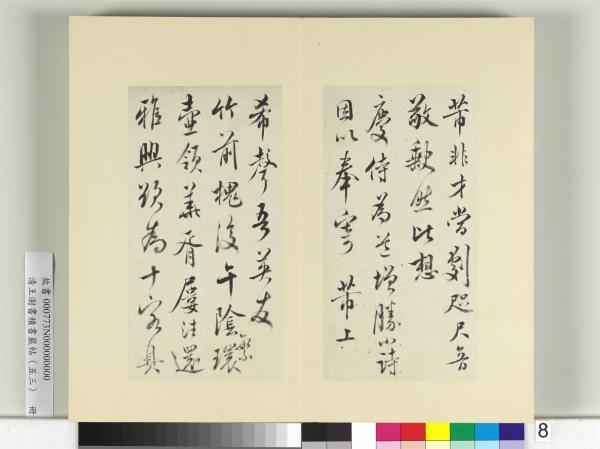 芾非才當劇咫尺音
敬缺然比想
慶侍為道增勝小詩
因以奉寄 芾上
希聲吾英友
竹前槐後午陰環繁
壺領華胥屢往還
雅興欲為十客具
故書 000773N000000000
清王澍書積書巖帖(五三) 冊
8